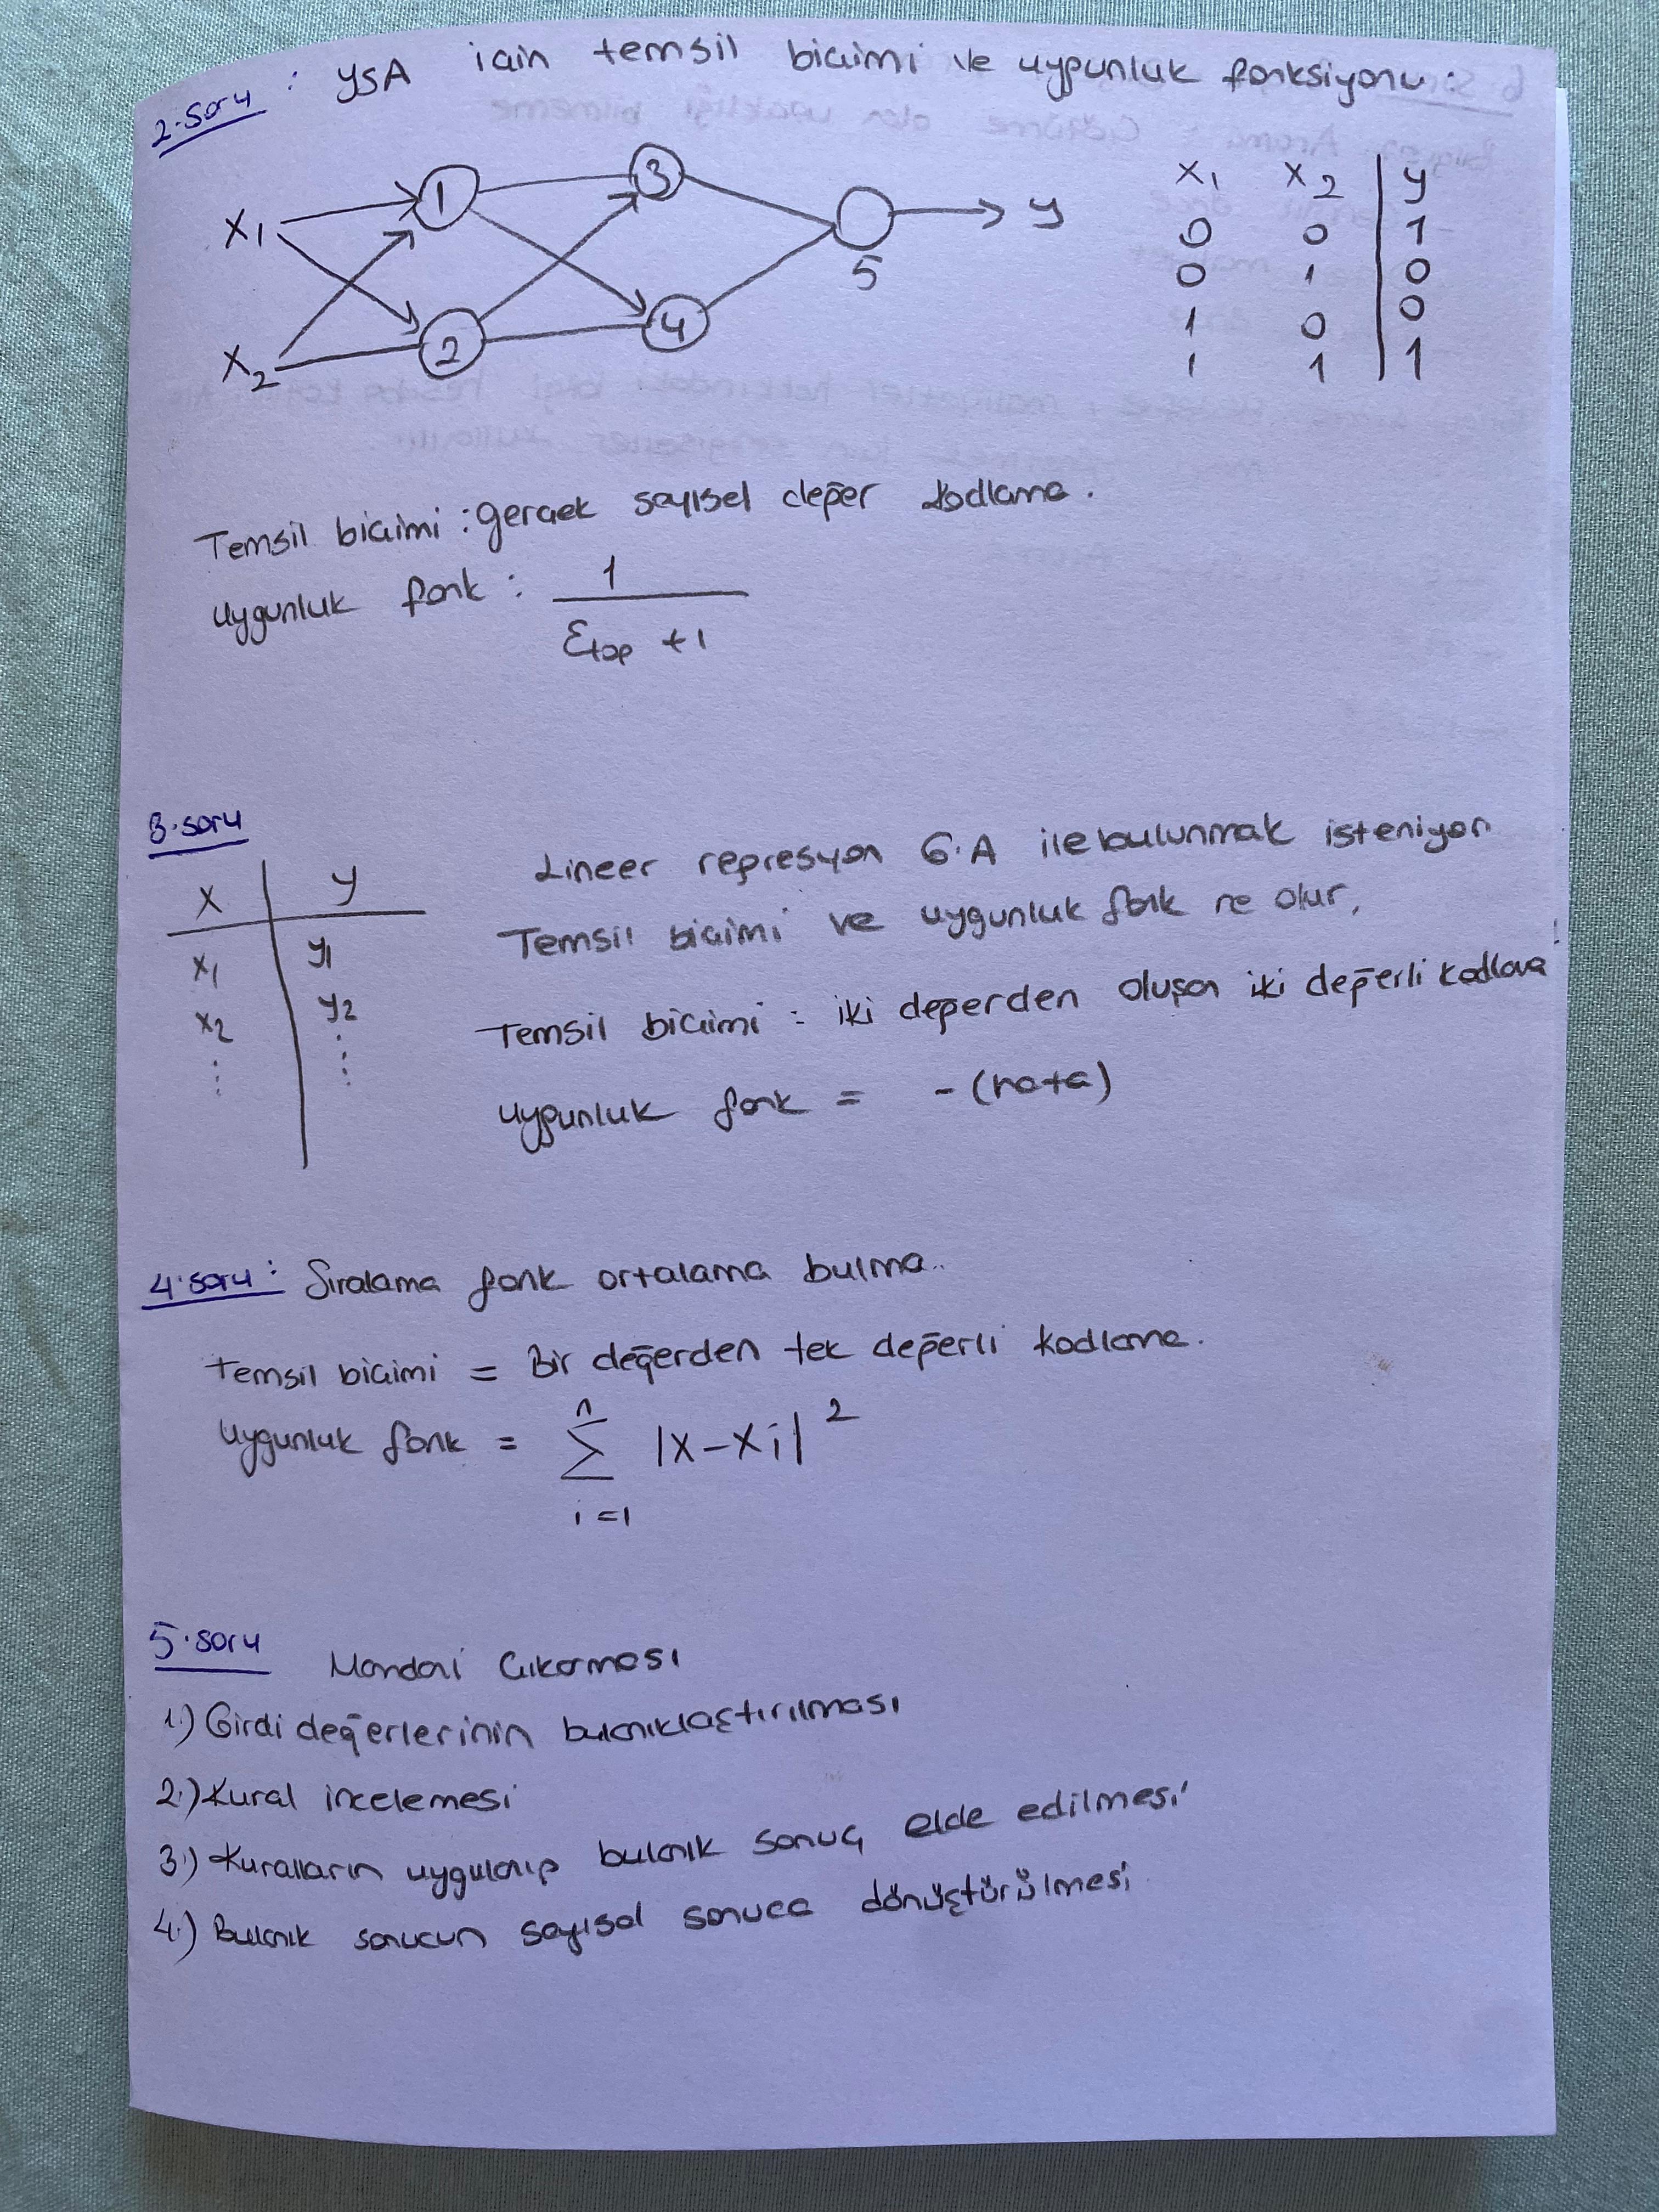 2.soru : YSA için temsil biçimi ve uygunluk fonksiyonu :
x1 1 3 5 y
x2 2 4
x1 x2 y
0 0 1
0 1 0
1 0 0
1 1 1
Temsil biçimi : gerçek sayısal değer kodlama.
uygunluk fonk : 1 / (Ɛtop +1)
3.soru
x y
x1 y1
x2 y2
⋮ ⋮
Lineer regresyon G.A ile bulunmak isteniyor
Temsil biçimi ve uygunluk fonk ne olur,
Temsil biçimi : iki değerden oluşan iki değerli kodlama
uygunluk fonk = -(hata)
4.soru : Sıralama fonk ortalama bulma..
temsil biçimi = Bir değerden tek değerli kodlama.
uygunluk fonk = n ∑ i=1 |x-xi|²
5.soru Mamdani Çıkarması
1.) Girdi değerlerinin bulanıklaştırılması
2.) Kural incelemesi
3.) Kuralların uygulanıp bulanık sonuç elde edilmesi
4.) Bulanık sonucun sayısal sonuca dönüştürülmesi